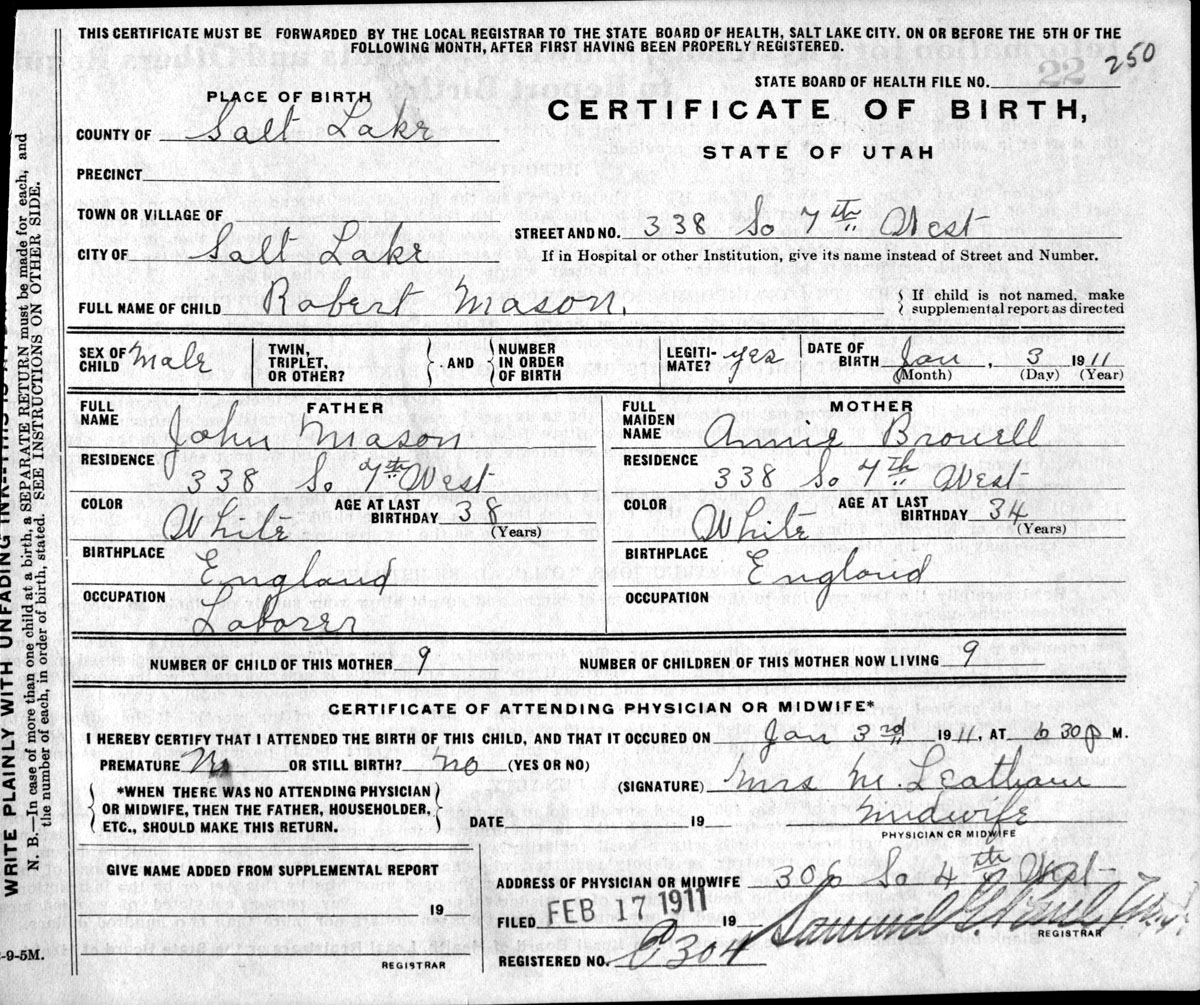 THIS CERTIFICATE MUST BE FORWARDED BY THE LOCAL REGISTRAR TO THE STATE BOARD OF HEALTH, SALT LAKE CITY. ON OR BEFORE THE 5TH OF THE
FOLLOWING MONTH, AFTER FIRST HAVING BEEN PROPERLY REGISTERED.
22 250
STATE BOARD OF HEALTH FILE NO.
PLACE OF BIRTH
CERTIFICATE OF BIRTH,
STATE OF UTAH
COUNTY OF Salt Lake
PRECINCT
TOWN OR VILLAGE OF
STREET AND NO. 338 So 7th West
CITY OF Salt Lake
If in Hospital or other Institution, give its name instead of Street and Number.
FULL NAME OF CHILD Robert Mason.
If child is not named, make
supplemental report as directed
SEX OF CHILD Male
TWIN, TRIPLET, OR OTHER?
AND
NUMBER IN ORDER OF BIRTH
LEGITI-MATE? yes
DATE OF BIRTH Jan, 3 1911
(Month) (Day) (Year)
FATHER
FULL NAME John Mason
RESIDENCE 338 So 7th West
COLOR White
AGE AT LAST BIRTHDAY 38 (Years)
BIRTHPLACE England
OCCUPATION Laborer
MOTHER
FULL MAIDEN NAME Annie Browell
RESIDENCE 338 So 7th West
COLOR White
AGE AT LAST BIRTHDAY 34 (Years)
BIRTHPLACE England
OCCUPATION
NUMBER OF CHILD OF THIS MOTHER 9
NUMBER OF CHILDREN OF THIS MOTHER NOW LIVING 9
CERTIFICATE OF ATTENDING PHYSICIAN OR MIDWIFE*
I HEREBY CERTIFY THAT I ATTENDED THE BIRTH OF THIS CHILD, AND THAT IT OCCURED ON Jan 3rd 1911, AT 6 30 P M.
PREMATURE OR STILL BIRTH? no (YES OR NO)
(SIGNATURE) Mrs M. Leatham
*WHEN THERE WAS NO ATTENDING PHYSICIAN
OR MIDWIFE, THEN THE FATHER, HOUSEHOLDER,
ETC., SHOULD MAKE THIS RETURN.
DATE 19
Midwife
PHYSICIAN OR MIDWIFE
GIVE NAME ADDED FROM SUPPLEMENTAL REPORT
19
REGISTRAR
ADDRESS OF PHYSICIAN OR MIDWIFE So 4th West
FILED FEB 17 1911 19
Samuel G. Paul
REGISTRAR
REGISTERED NO. 304
WRITE PLAINLY WITH UNFADING INK--THIS IS A
N. B.—In case of more than one child at a birth, a SEPARATE RETURN must be made for each, and
the number of each, in order of birth, stated. SEE INSTRUCTIONS ON OTHER SIDE.
-9-5M.